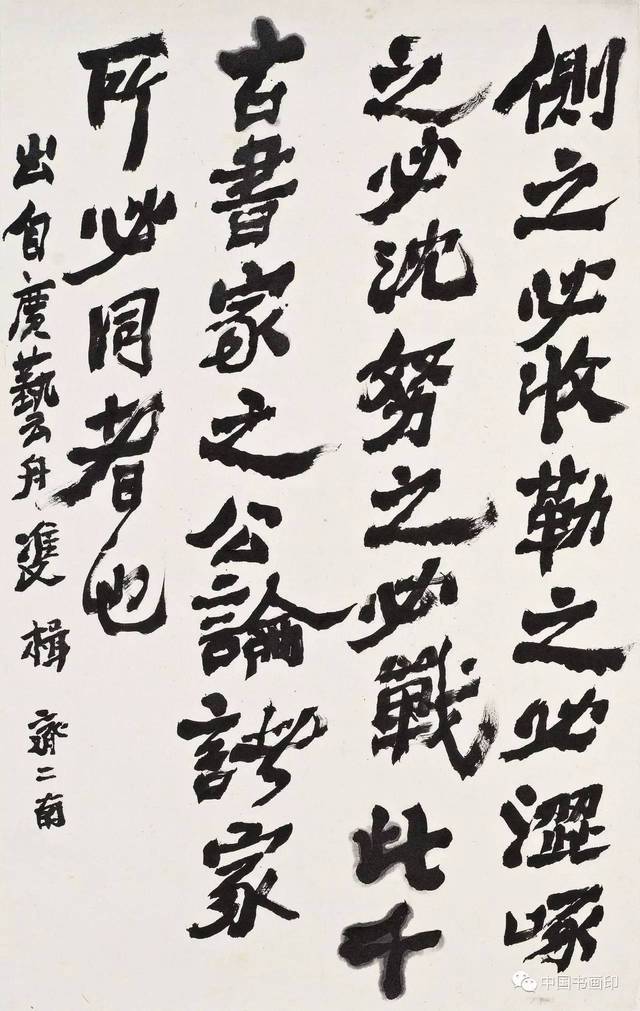 側之必收勒之必澀啄
之必沈努之必戰此千
古書家之公論諸家
所必同者也
出自廣藝舟雙楫
中国书画印